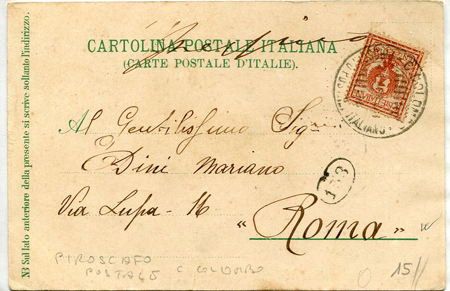 CARTOLINA POSTALE ITALIANA
(CARTE POSTALE D'ITALIE).
NB Sul lato anteriore della presente si scrive soltanto l'indirizzo.
Al Gentilissimo Sigr
Dini Mariano
Via Lupa - 16
"Roma"
PIROSCAFO
POSTALE C COLOMBO
15